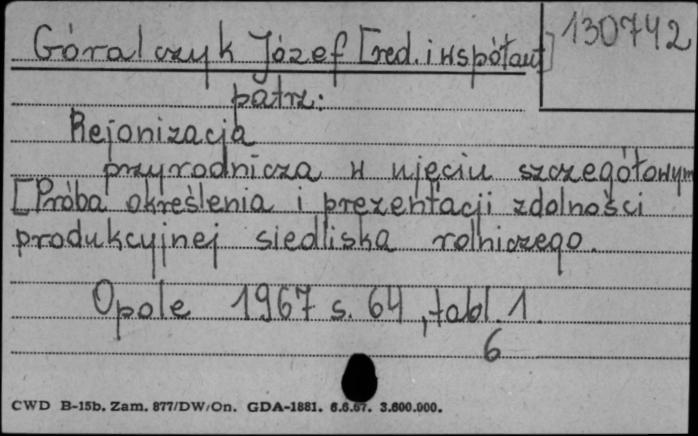 Góralczyk Józef [red. i współaut]
130742
patrz:
Rejonizacja
przyrodnicza w ujęciu szczegółowym
[Próba określenia i prezentacji zdolności
produkcyjnej siedliska rolniczego.
Opole 1967 s. 64, tabl. 1.
6
CWD B-15b. Zam. 877/DW/On. GDA-1881. 6.6.67. 3.600.000.